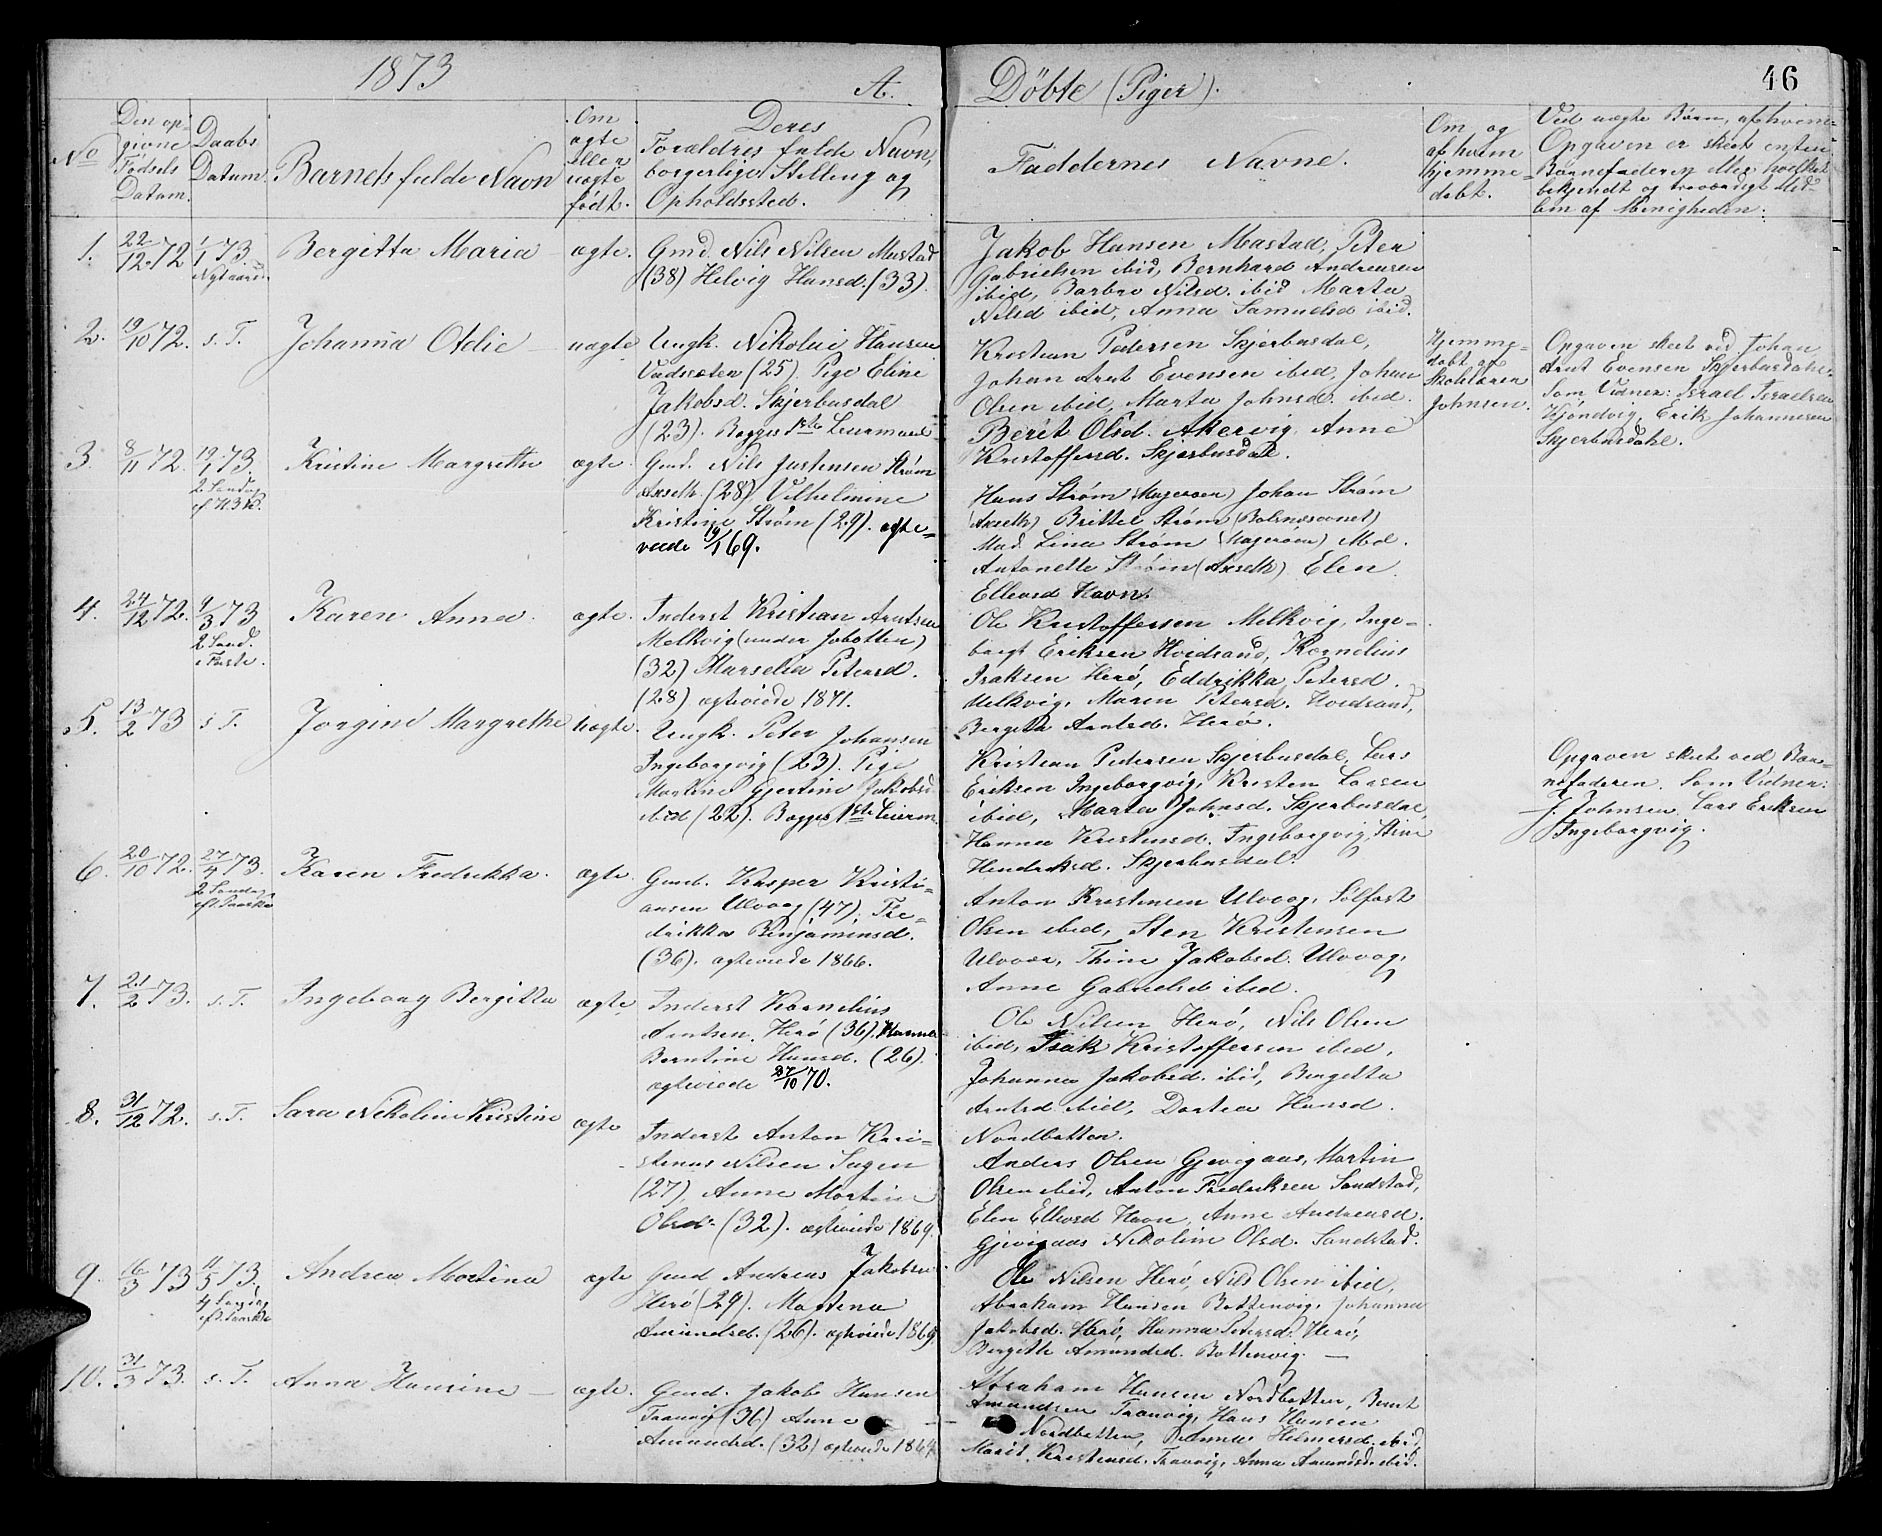 1873 A. Döbte (Piger). 46
No
Den op-
givne
Fødsels
Datum.
Daabs
Datum.
Barnets fulde Navn
Om
ægte
Eller
uægte
født.
Deres
Forældres fulde Navn,
borgerlige Stilling og
Opholdssted.
Faddernes Navne.
Om og
af hvem
hjemme-
døbt.
Ved uægte Børn, af hvem
Opgaven er skeet
Barnefaderen
bekjendt og troværdigt Med-
lem af Menigheden.
1. 22/12 72 1/1 73. Bergitta Maria ægte.
Nytaarsd.
Gmd. Nils Nilsen Mastad
(38) Helvig Hansd. (33).
Jakob Hansen Mastad, Peter
Gabrielsen ibid, Bernhard Andreasen
ibid, Barbro Nilsd. ibid Marta
Nilsd ibid, Anna Samuelsd ibid.
2. 19/10 72. s. T. Johanna Odlie uægte
Ungk. Nikolai Hansen
(25). Pige Eline
Jakobsd. Skjerbusdal
(23). Begges 1ste Leiermaal
Kristian Pedersen Skjerbusdal,
Johan Arnt Evensen ibid, Johan
Olsen ibid, Marta Johnsd. ibid.
Berit Olsd. Akervig, Anne
Kristoffersd. Skjerbusdal.
Hjemme-
døbt af
Skolelærer
Johnsen.
Opgaven skeet ved Johan
Arnt Evensen Skjerbusdahl.
Som Vidner: Israel Israelsen
Kjöndvig, Erik Johannesen
Skjerbusdahl.
3. 8/11 72. 19/1 73. Kristine Margrethe ægte.
2 Sondag
ef. H3K.
Gmd. Nils Justensen Strøm
Axseth. (28) Vilhelmine
Kristine Strøm (29). ægte-
viede 19/1 69.
Hans Strøm (Magerøen) Johan Strøm
(Axseth) Brittel Strøm (Bolsnæsvnet)
Mad. Lina Strøm (Magerøen) Md.
Antonette Strøm (Axseth) Elen
Ellevsd Havn.
4. 24/12 72. 9/3 73 Karen Anna. ægte.
2 Sønd.
i Faste.
Inderst Kristian Arntsen
Melkvig (under Jobotten)
(32) Marselia Petersd.
(28) ægteviede 1871.
Ole Kristoffersen Melkvig, Inge-
borgt Eriksen Hvidsand, Kornelius
Isaksen Herö, Eddrikka Petersd.
Melkvig, Maren Petersd. Hvidsand,
Bergita Arntsd. Herö.
5. 13/2 73 s T. Jorgine Margrethe uægte.
Ungk. Peter Johansen
Ingeborgvig (23). Pige
Martine Gjertine Jakobsd
ibid (22). Begges 1ste Leierm.
Kristian Pedersen Skjerbusdal, Lars
Eriksen Ingeborgvig, Kristen Larsen
ibid, Marta Johnsd. Skjerbusdal,
Hanna Kristensd. Ingeborgvig, Stine
Hendriksd. Skjerbusdal.
Opgaven skeet ved Bar-
nefaderen. Som Vidner:
J. Johnsen. Lars Eriksen
Ingeborgvig.
6. 20/10 72. 27/4 73. Karen Fredrikka. ægte.
2 Søndag
eft. Paaske
Gmd. Kasper Kristi-
ansen Ulvaag (47), Fre-
drikka Benjaminsd.
(36). ægteviede 1866.
Anton Kristensen Ulvaag, Sölfast
Olsen ibid, Sten Kristensen
Ulvaa, Thine Jakobsd. Ulvaag,
Anne Gabrielsd ibid.
7. 21/2 73. s. T. Ingeborg Bergitta ægte.
Inderst Kornelius
Arntsen, Herö (36). Hanna
Berntine Hansd. (26).
ægteviede 27/10 70.
Ole Nilsen Herö, Nils Olsen
ibid, Isak Kristoffersen ibid,
Johanna Jakobsd. ibid, Bergitta
Arntsd ibid, Dortea Hansd.
Nordbotten.
8. 31/12 72. s. T. Sara Nikoline Kristine ægte
Inderst Anton Kri-
stenus Nilsen Sagen
(27), Anne Martine
Olsd. (32). ægteviede 1869.
Anders Olsen Gjevigaas, Martin
Olsen ibid, Anton Fredriksen Sandstad,
Elen Ellevsd Havn, Anne Andreasd.
Gjevigaas Nikoline Olsd. Sandstad.
9. 16/3 73 11/5 73. Andrea Martina ægte
4 Søndag
eft. Paaske
Gmd Andreas Jakobsen
Herö (29). Martena
Amundsd. (26). ægteviede 1869.
Ole Nilsen Herö, Nils Olsen ibid,
Abraham Hansen Bottenvig, Johanna
Jakobsd. Herö, Hanna Petersd. Herö,
Bergitte Amundsd. Bottenvig. —
10. 31/3 73. s. T. Anna Hansine ægte.
Gmd. Jakob Hansen
Tranvig (36) Anne
Amundsd. (32) ægteviede 186
Abraham Hansen Nordbotten, Bernt
Amundsen Tranvig, Hans Hansen
Nordbotten, Hanna Helmersd. ibid,
Marit Kristensd. Tranvig, Anna Amundsd. ibid.